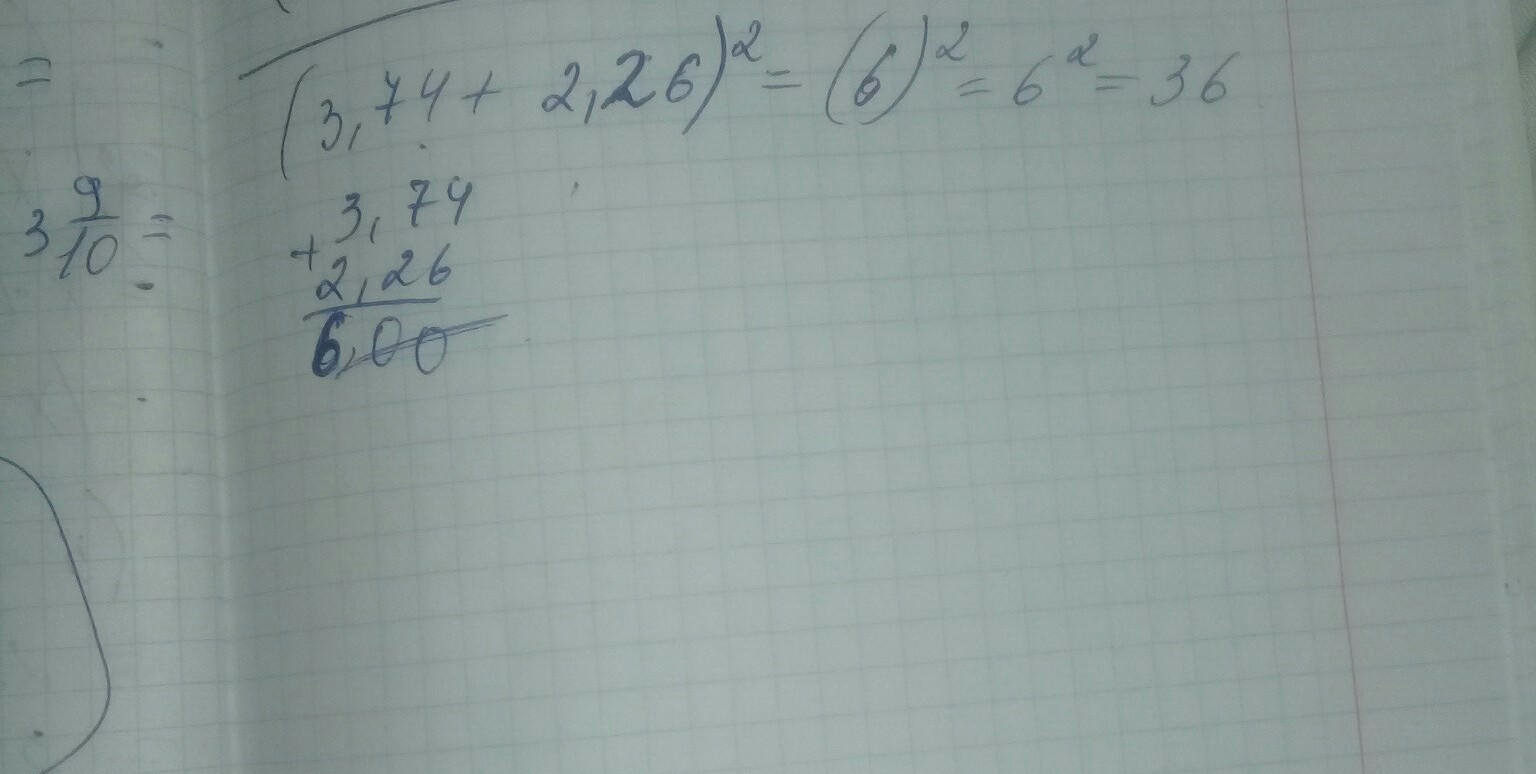 =
(3,74 + 2,26)² = (6)² = 6² = 36
3 9/10 =
3,74
+
2,26
6,00